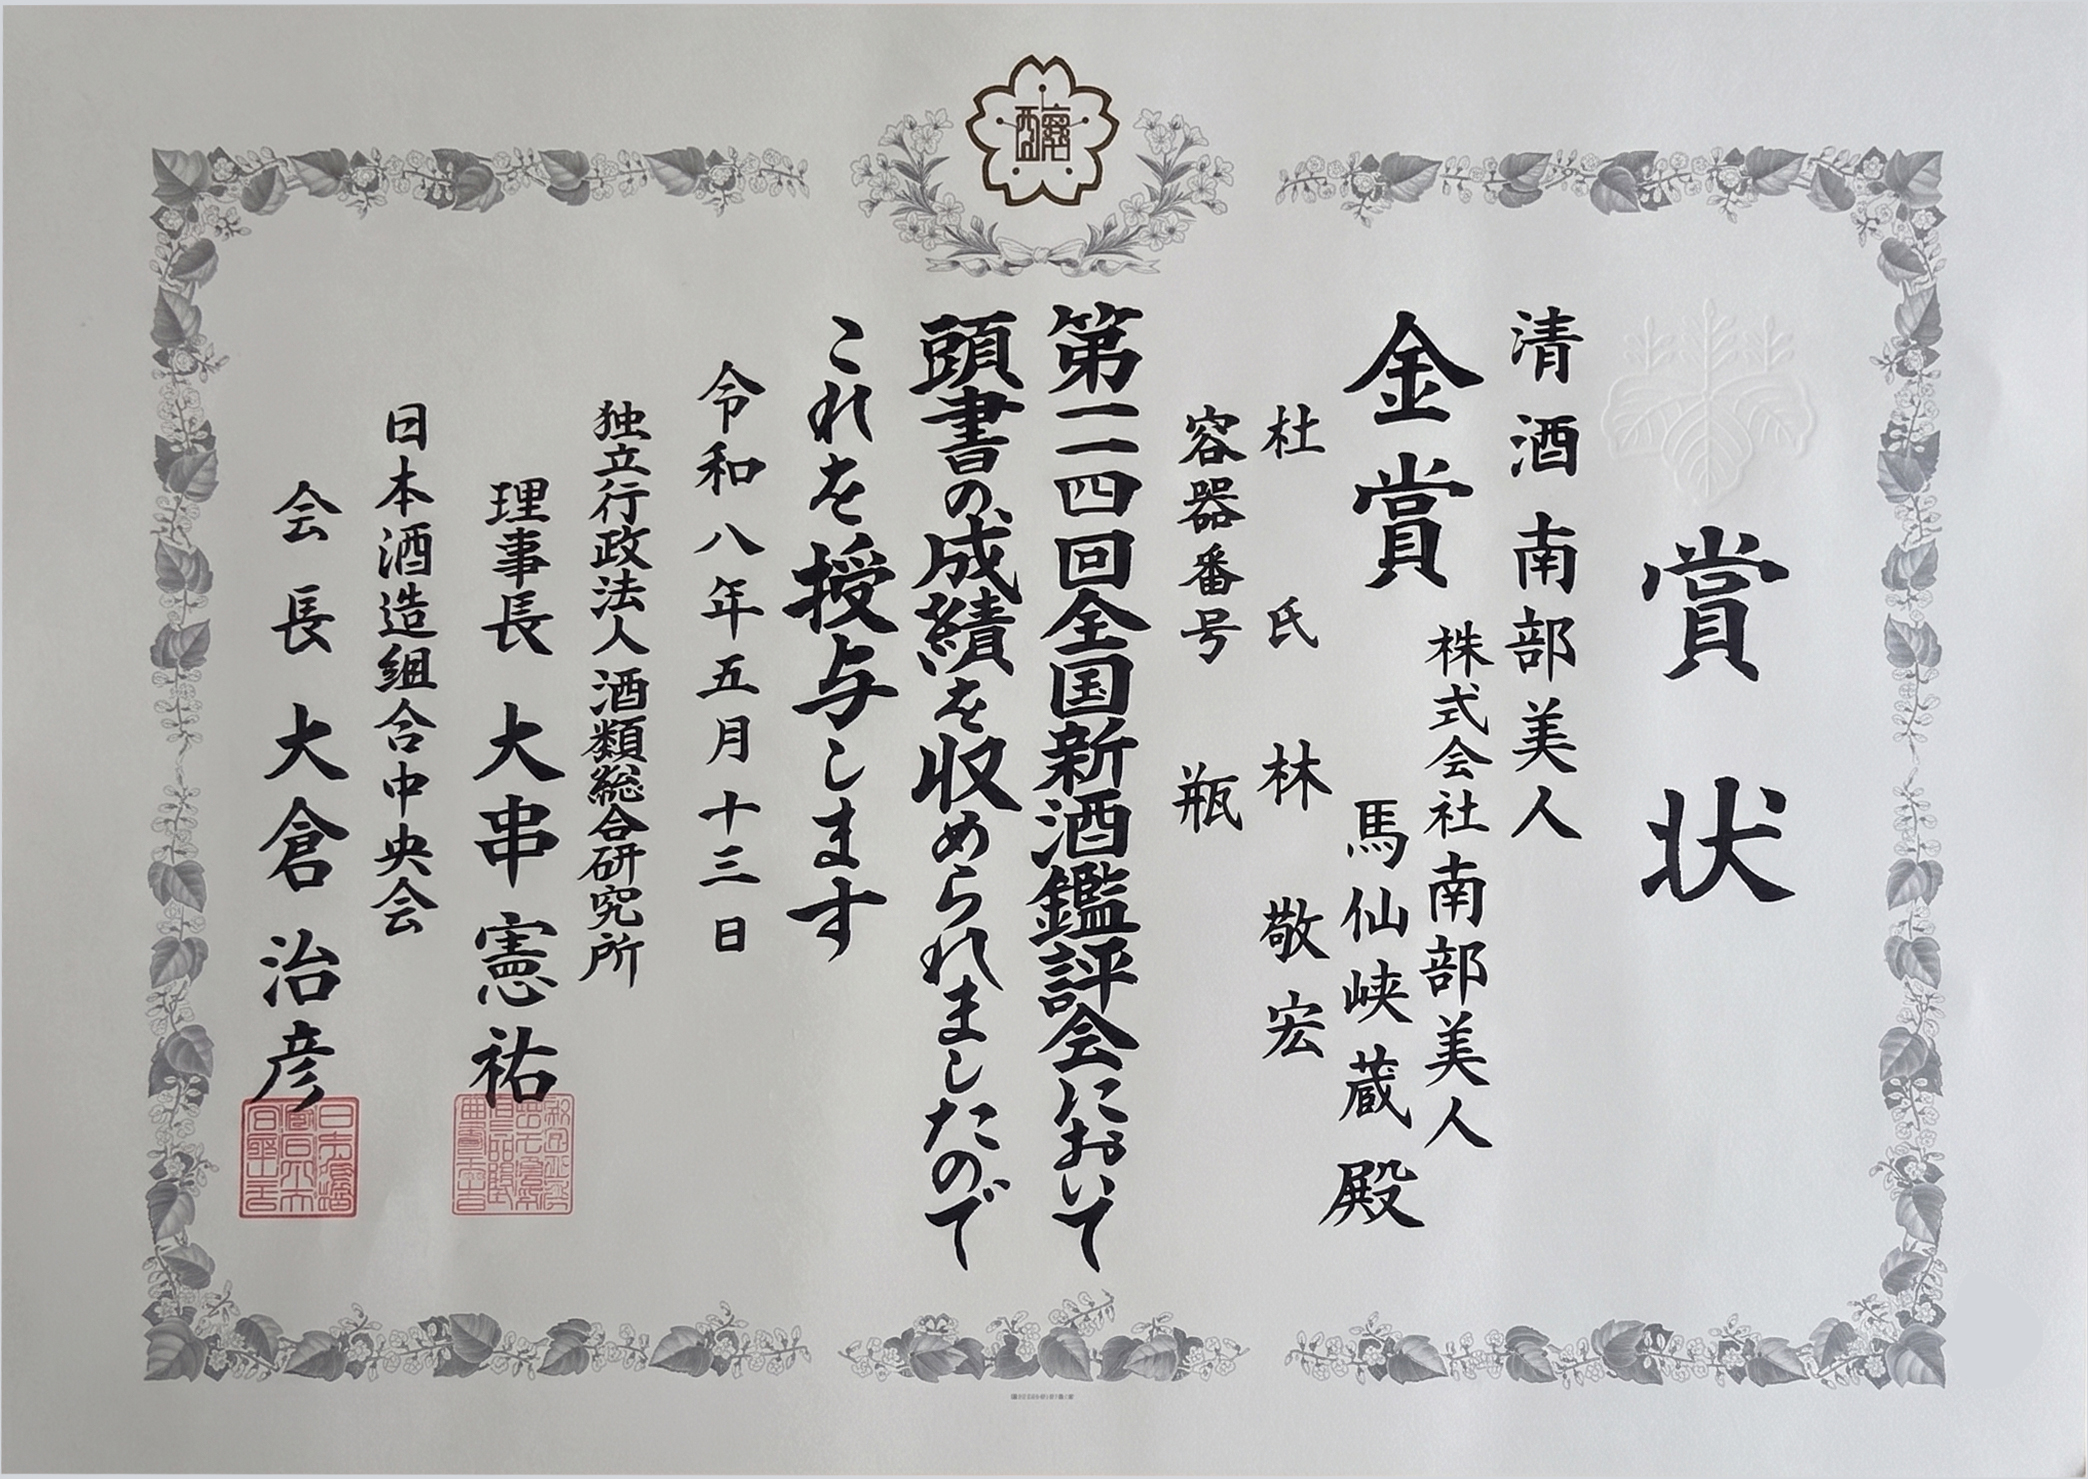 賞状
清酒 南部美人
金賞
株式会社南部美人
馬仙峡蔵 殿
杜氏 林 敬宏
容器番号 瓶
第一一四回全国新酒鑑評会において
頭書の成績を収められましたので
これを授与します
令和八年五月十三日
独立行政法人 酒類総合研究所
理事長 大串憲祐
日本酒造組合中央会
会長 大倉治彦